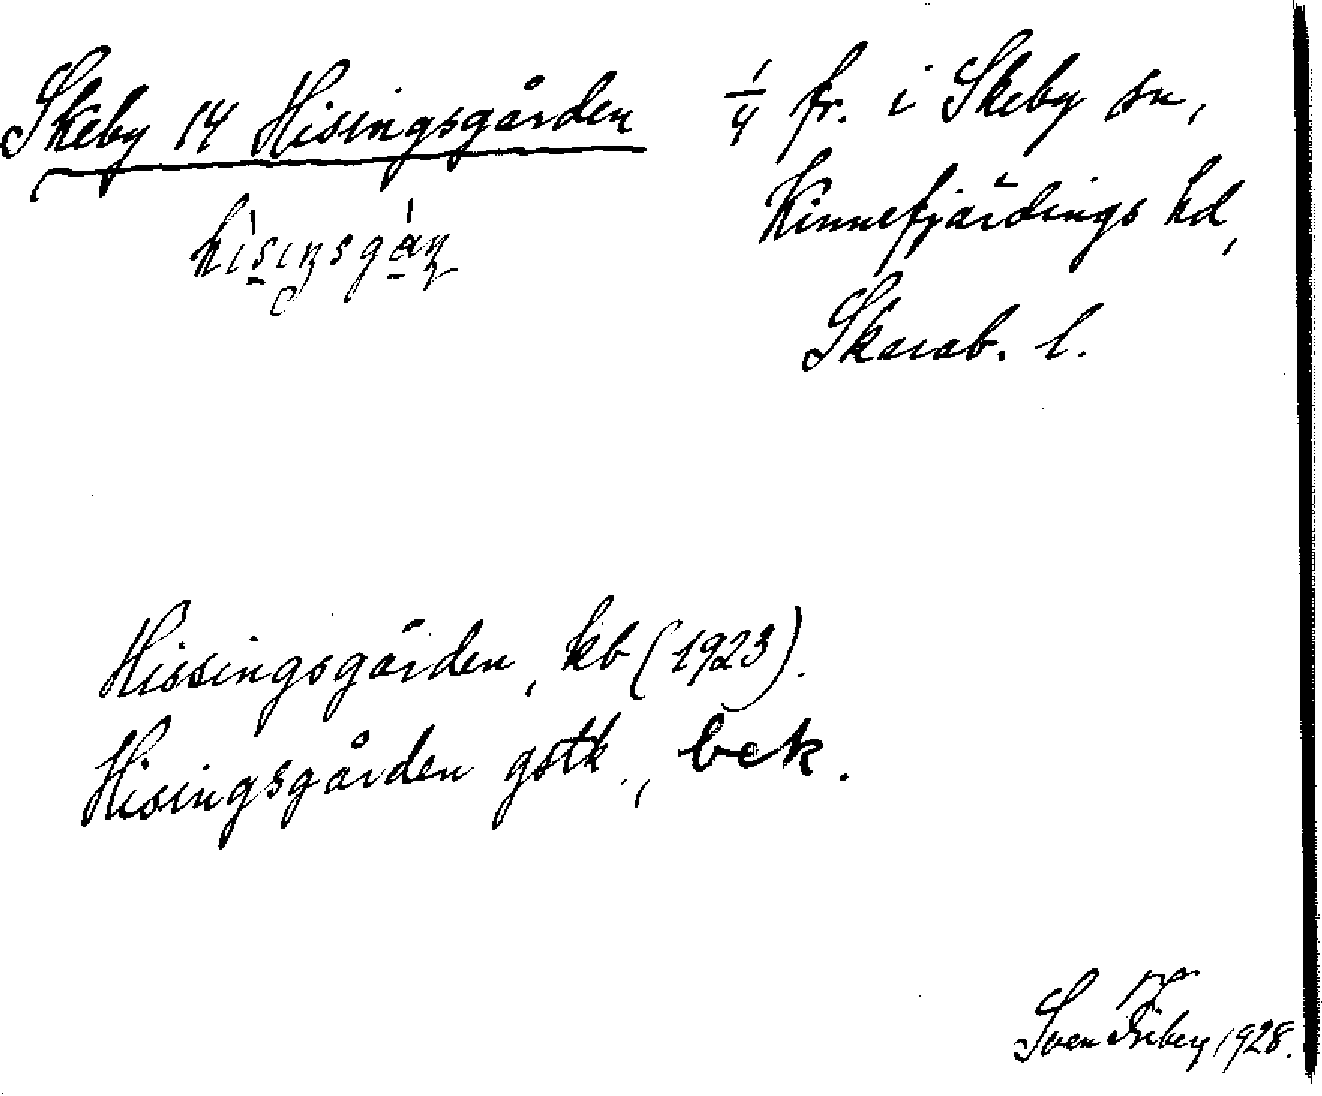 Skeby 14 Hisingsgården 1/4 fr. i Skeby sn,
Kinnefjärdings hd,
Skarab. l.
Hissingsgården, kb (1923).
Hisingsgården gstk., bek.
Sven Friberg 1928.